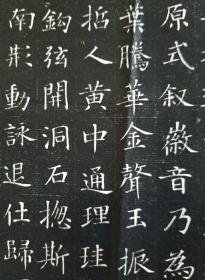 原式叙徽音乃為
葉騰華金聲玉振
哲人黄中通理珪
鈎弦開洞石揔斯
南荆動詠退仕歸